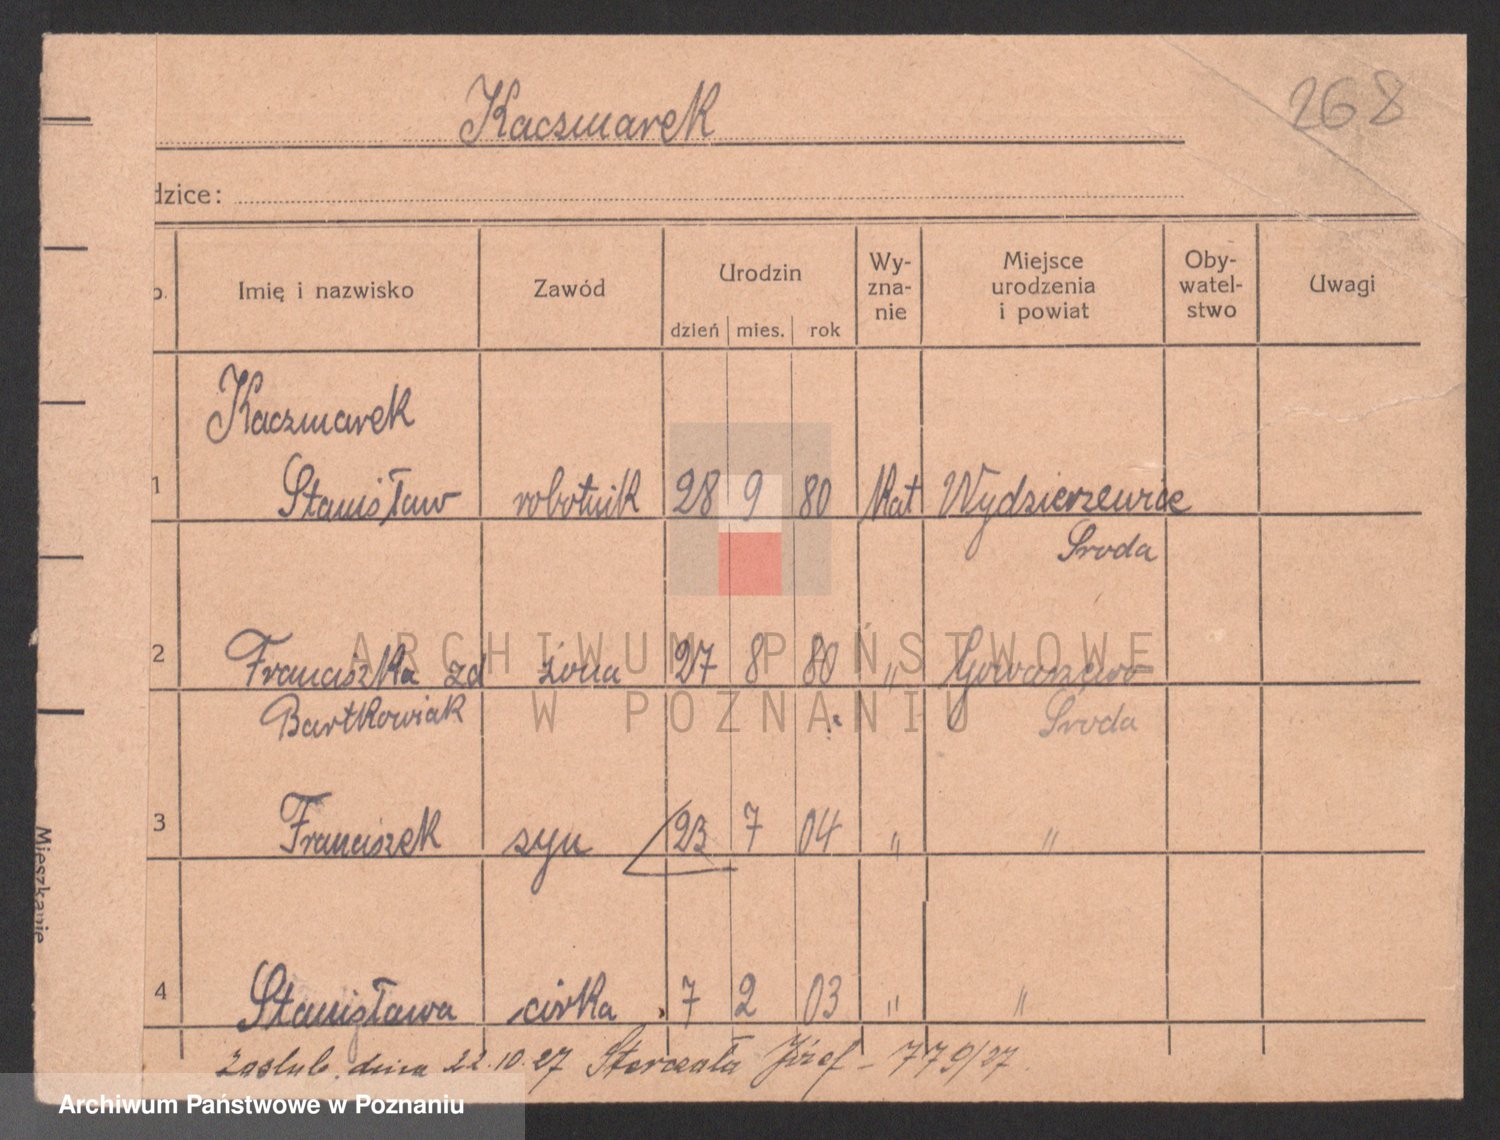 Kaczmarek
268
dzice:
Imię i nazwisko Zawód Urodzin Wy-zna-nie Miejsce urodzenia i powiat Oby-watel-stwo Uwagi
dzień mies. rok
Kaczmarek
1 Stanisław robotnik 28 9 80 kat Wydzierzewice
Sroda
2 Franciszka zd żona 27 8 80 " Gowarzewo
Bartkowiak Sroda
3 Franciszek syn 23 7 04 " "
4 Stanisława córka 7 2 03 " "
zaślub. dnia 22.10.27 Józef - 779/27.
Mieszkanie
ARCHIWUM PAŃSTWOWE
W POZNANIU
Archiwum Państwowe w Poznaniu